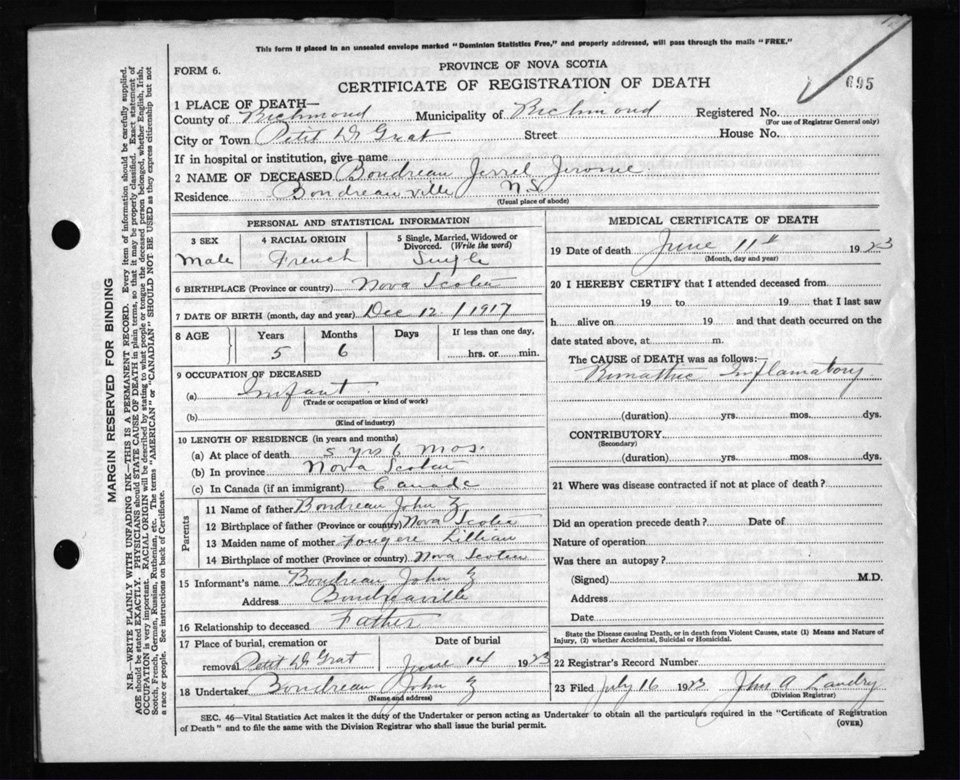 This form if placed in an unsealed envelope marked "Dominion Statistics Free," and properly addressed, will pass through the mails "FREE."
PROVINCE OF NOVA SCOTIA
FORM 6.
CERTIFICATE OF REGISTRATION OF DEATH
695
1 PLACE OF DEATH—
County of Richmond Municipality of Richmond Registered No.
(For use of Registrar General only)
City or Town Petit De Grat Street House No.
If in hospital or institution, give name
2 NAME OF DECEASED Boudreau Jerrel Jerome
Residence Boudreauville N.S.
(Usual place of abode)
PERSONAL AND STATISTICAL INFORMATION
3 SEX 4 RACIAL ORIGIN 5 Single, Married, Widowed or Divorced. (Write the word)
Male French Single
6 BIRTHPLACE (Province or country) Nova Scotia
7 DATE OF BIRTH (month, day and year) Dec 12 / 1917
8 AGE Years Months Days If less than one day,
5 6 hrs. or min.
9 OCCUPATION OF DECEASED
(a) Infant
(Trade or occupation or kind of work)
(b)
(Kind of industry)
10 LENGTH OF RESIDENCE (in years and months)
(a) At place of death 5 yrs 6 mos.
(b) In province Nova Scotia
(c) In Canada (if an immigrant) Canada
Parents
11 Name of father Boudreau John Z
12 Birthplace of father (Province or country) Nova Scotia
13 Maiden name of mother Fougere Lillian
14 Birthplace of mother (Province or country) Nova Scotia
15 Informant's name Boudreau John Z
Address Boudreauville
16 Relationship to deceased Father
17 Place of burial, cremation or Date of burial
removal Petit De Grat June 14 1923
18 Undertaker Boudreau John Z
(Name and address)
MEDICAL CERTIFICATE OF DEATH
19 Date of death June 11th 1923
(Month, day and year)
20 I HEREBY CERTIFY that I attended deceased from
19 to 19 that I last saw
h alive on 19 and that death occurred on the
date stated above, at m.
The CAUSE of DEATH was as follows:
Rumathic Inflamatory
(duration) yrs. mos. dys.
CONTRIBUTORY
(Secondary)
(duration) yrs. mos. dys.
21 Where was disease contracted if not at place of death?
Did an operation precede death? Date of
Nature of operation
Was there an autopsy?
(Signed) M.D.
Address
Date
State the Disease causing Death, or in death from Violent Causes, state (1) Means and Nature of
Injury, (2) whether Accidental, Suicidal or Homicidal.
22 Registrar's Record Number
23 Filed July 16 1923 Jhns A Landry
(Division Registrar)
SEC. 46—Vital Statistics Act makes it the duty of the Undertaker or person acting as Undertaker to obtain all the particulars required in the "Certificate of Registration
of Death" and to file the same with the Division Registrar who shall issue the burial permit.
(OVER)
MARGIN RESERVED FOR BINDING
N.B.—WRITE PLAINLY WITH UNFADING INK—THIS IS A PERMANENT RECORD. Every item of information should be carefully supplied.
AGE should be stated EXACTLY. PHYSICIANS should STATE CAUSE OF DEATH in plain terms, so that it may be properly classified. Exact statement of
OCCUPATION is very important. RACIAL ORIGIN will be described by stating to what people or tongue the deceased person belonged, whether English, Irish,
Scotch, French, German, Russian, Ruthenian, etc. The terms "AMERICAN" or "CANADIAN" SHOULD NOT BE USED as they express citizenship but not
a race or people. See instructions on back of Certificate.